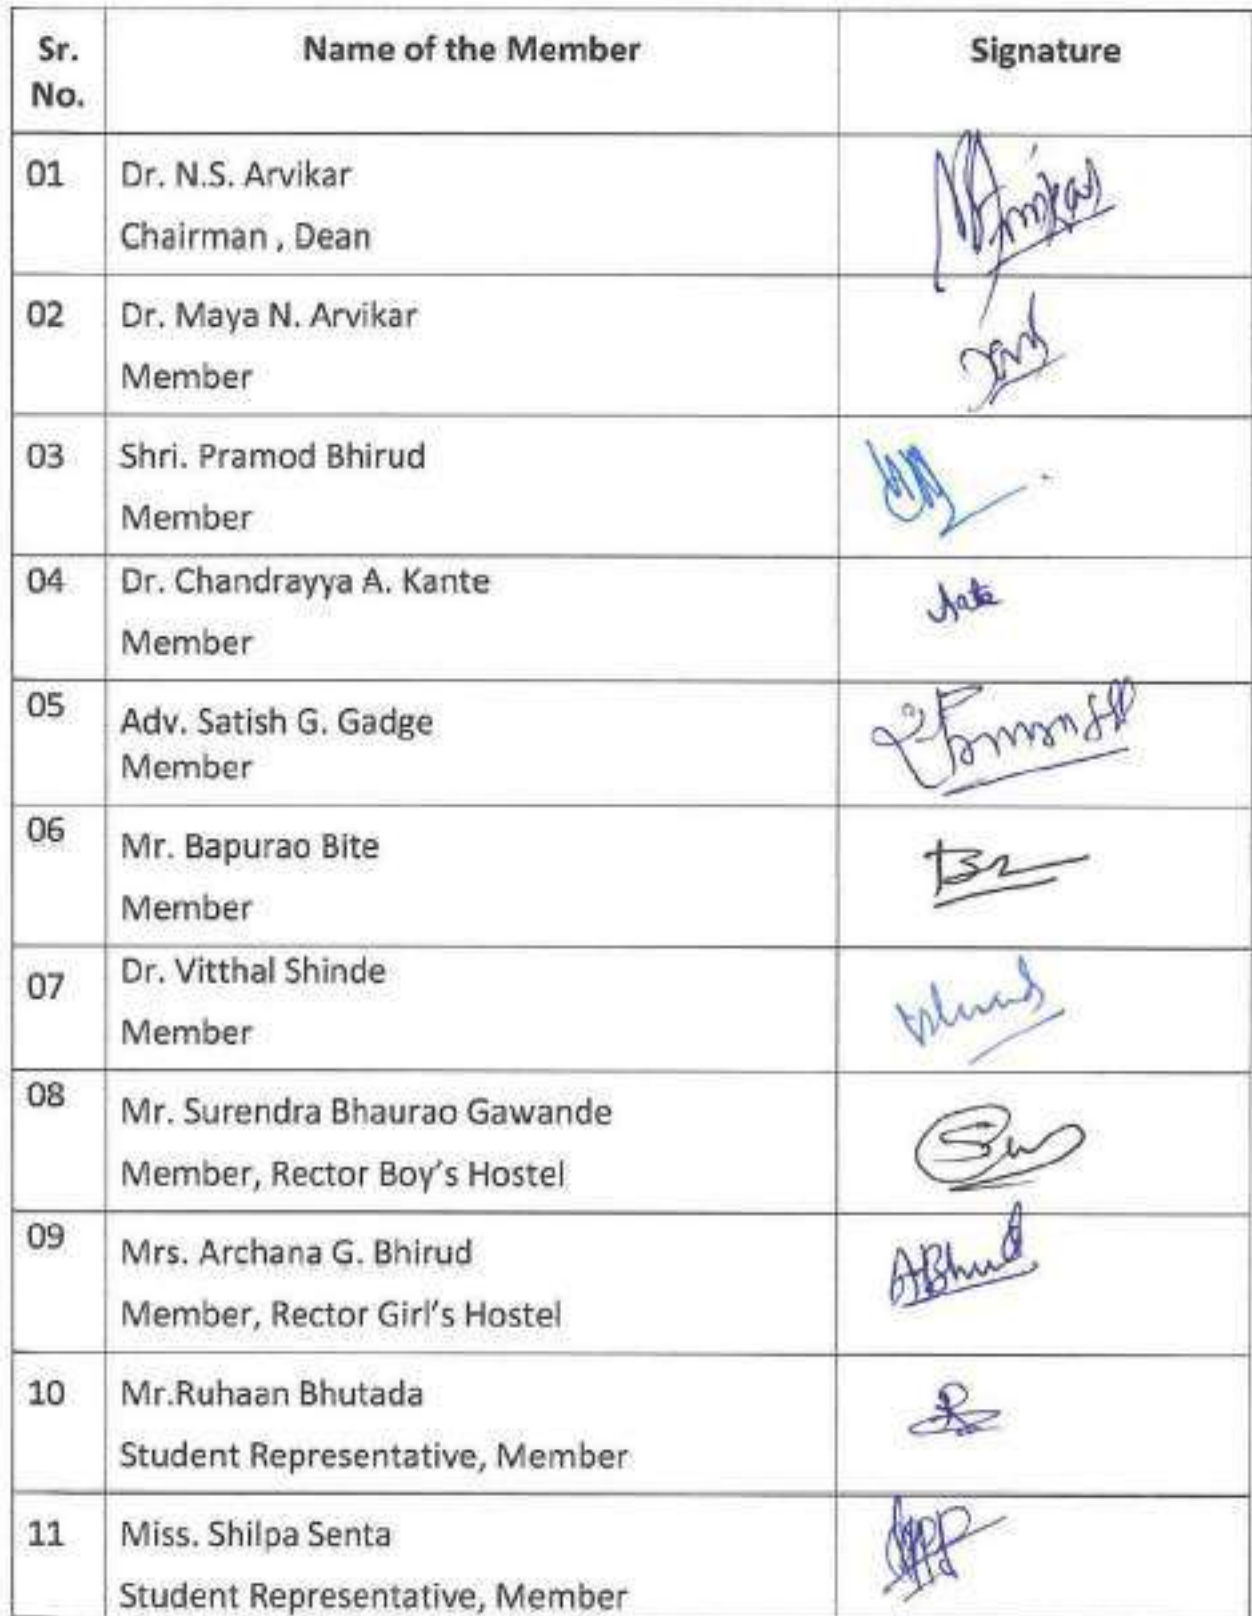 Sr. No. Name of the Member Signature
01 Dr. N.S. Arvikar
Chairman , Dean
02 Dr. Maya N. Arvikar
Member
03 Shri. Pramod Bhirud
Member
04 Dr. Chandrayya A. Kante
Member
05 Adv. Satish G. Gadge
Member
06 Mr. Bapurao Bite
Member
07 Dr. Vitthal Shinde
Member
08 Mr. Surendra Bhaurao Gawande
Member, Rector Boy's Hostel
09 Mrs. Archana G. Bhirud ABhirud
Member, Rector Girl's Hostel
10 Mr.Ruhaan Bhutada
Student Representative, Member
11 Miss. Shilpa Senta
Student Representative, Member